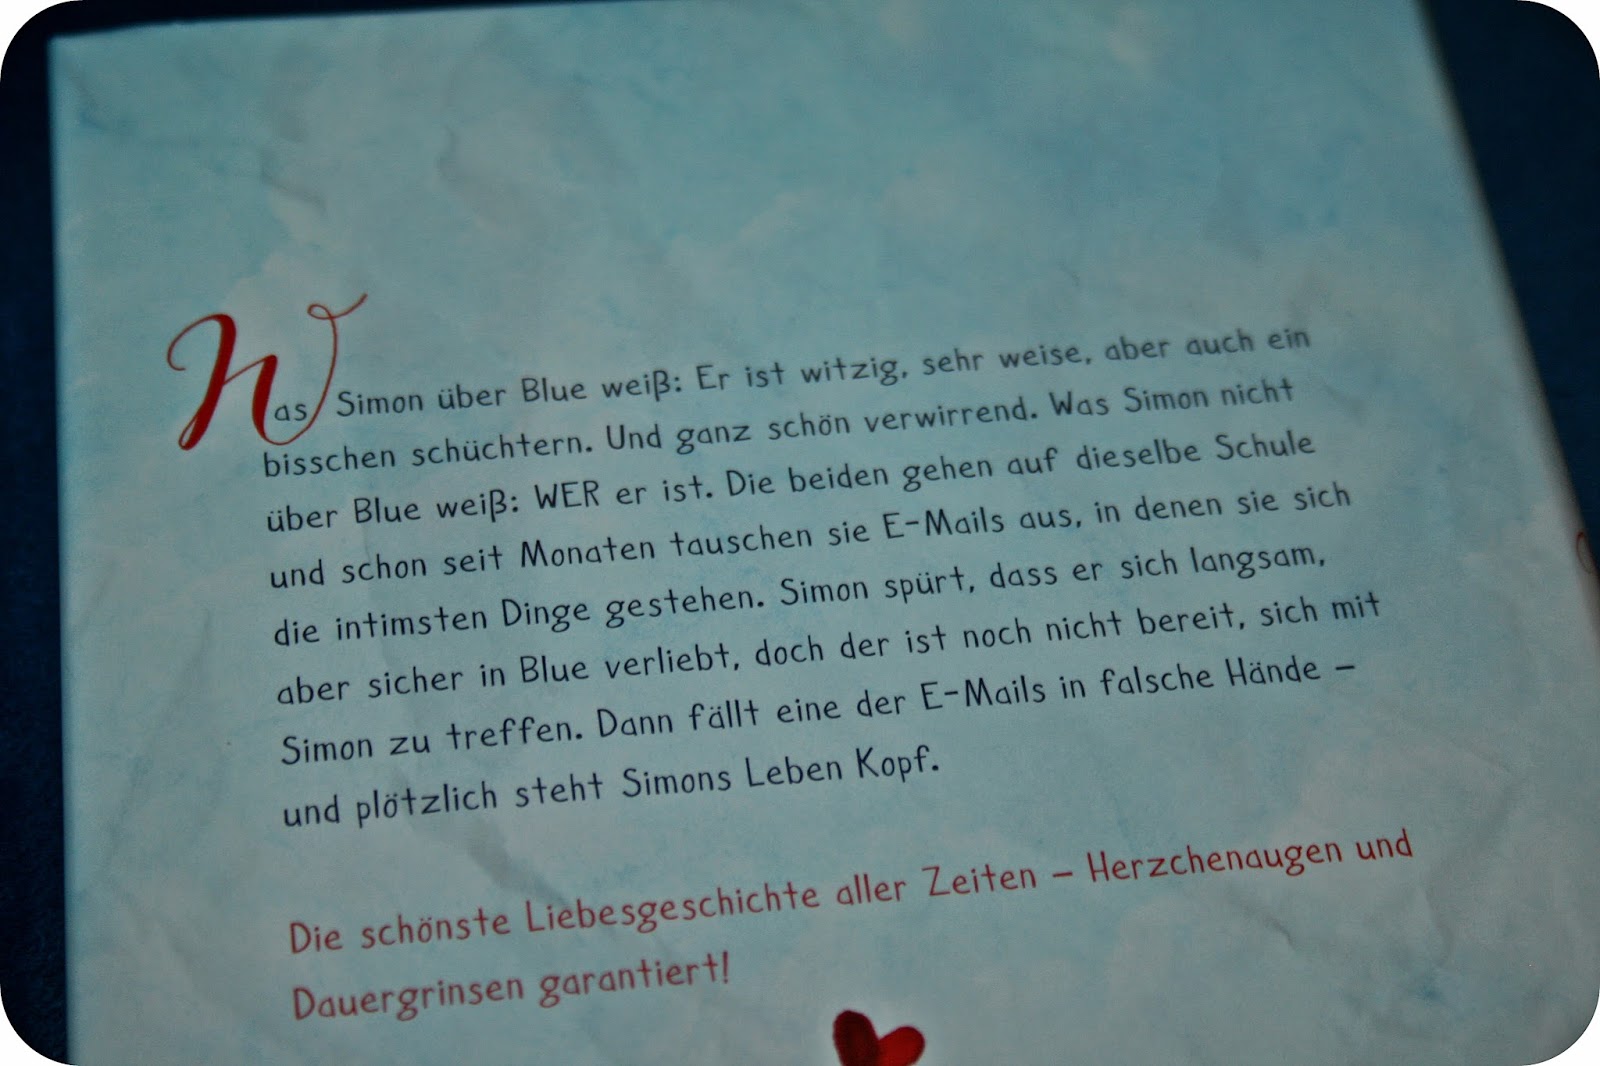 Was Simon über Blue weiß: Er ist witzig, sehr weise, aber auch ein
bisschen schüchtern. Und ganz schön verwirrend. Was Simon nicht
über Blue weiß: WER er ist. Die beiden gehen auf dieselbe Schule
und schon seit Monaten tauschen sie E-Mails aus, in denen sie sich
die intimsten Dinge gestehen. Simon spürt, dass er sich langsam,
aber sicher in Blue verliebt, doch der ist noch nicht bereit, sich mit
Simon zu treffen. Dann fällt eine der E-Mails in falsche Hände –
und plötzlich steht Simons Leben Kopf.
Die schönste Liebesgeschichte aller Zeiten – Herzchenaugen und
Dauergrinsen garantiert!